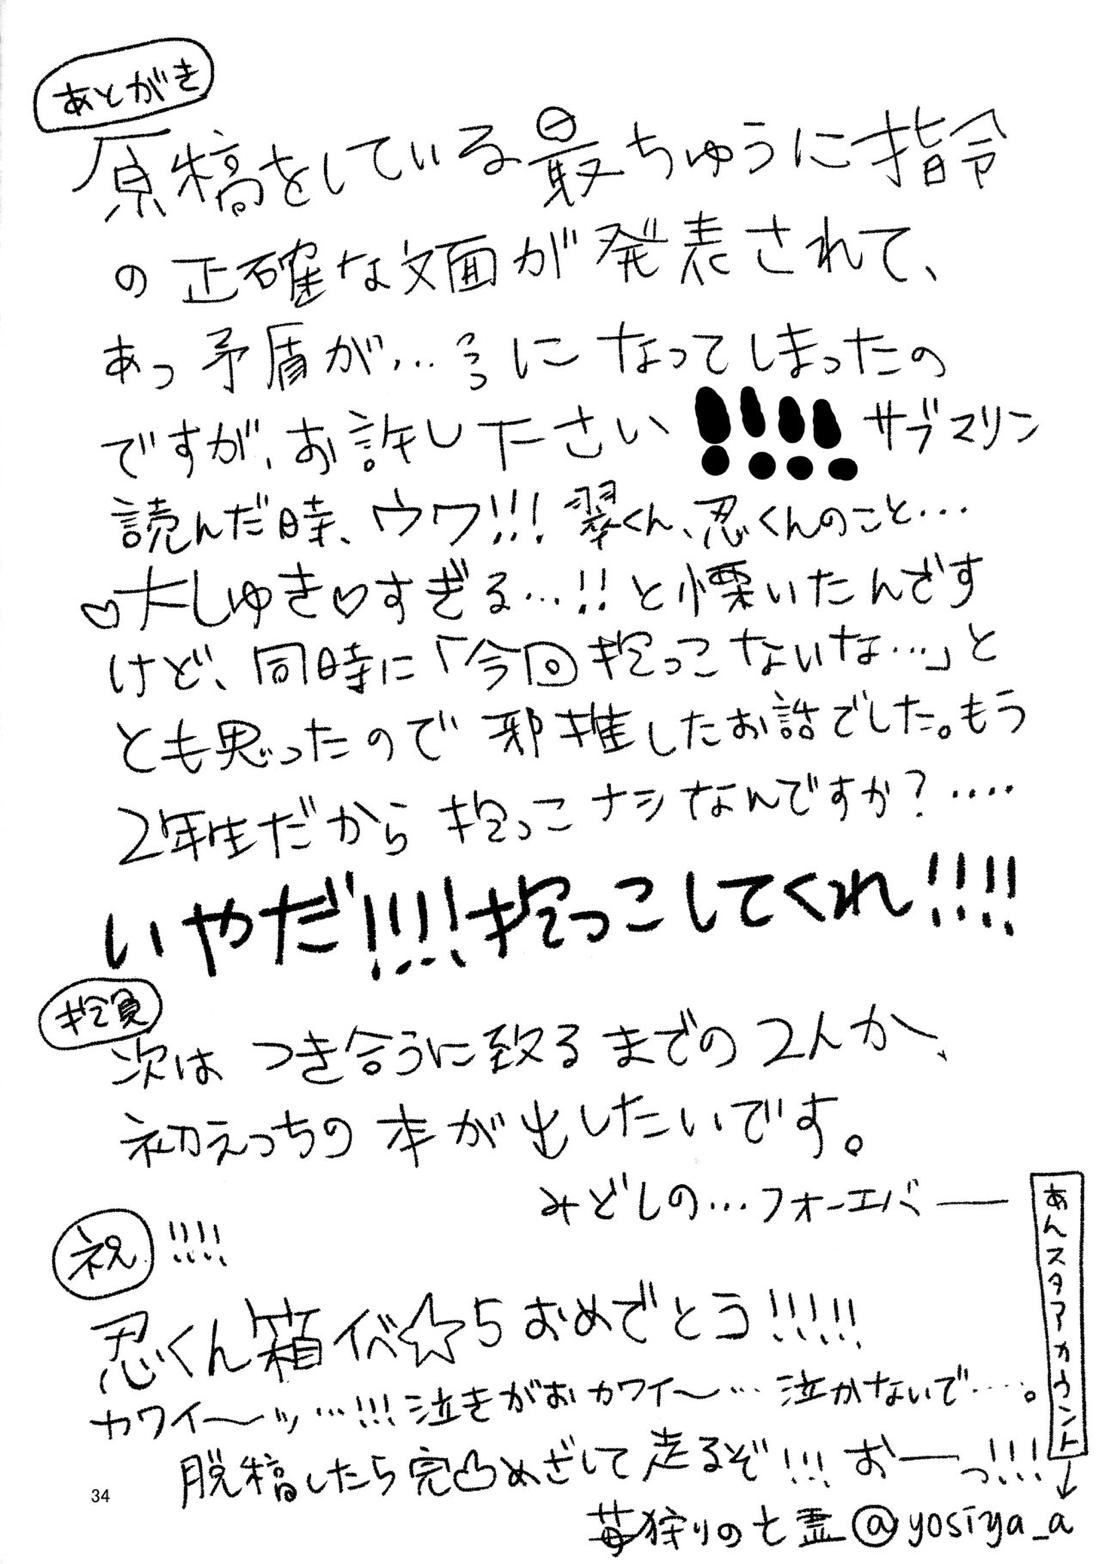 あとがき
原稿をしている最ちゅうに指令
の正確な文面が発表されて、
あっ矛盾が…ぅっになってしまったの
ですが、お許し下さい!!!!サブマリン
読んだ時、ウワ!!!翠くん、忍くんのこと…
♡大しゅき♡すぎる…!!と慄いたんです
けど、同時に「今回抱っこないな…」と
とも思ったので邪推したお話でした。もう
2年生だから抱っこナシなんですか?‥‥
いやだ!!!!抱っこしてくれ!!!!
抱負
次はつき合うに致るまでの2人か、
初えっちの本が出したいです。
みどしの…フォーエバー
祝!!!!
忍くん箱イベ☆5おめでとう!!!!!
カワイ〜ッ…!!!泣きがおカワイ〜…泣かないで‥‥。
脱稿したら完凸めざして走るぞ!!!おーっ!!!
あんスタアカウント
↓
苺狩りの七霊@yosiya_a
34